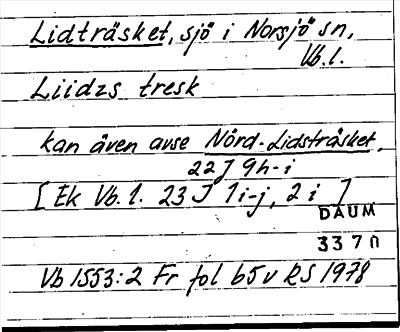 Lidträsket, sjö i Norsjö sn,
Vb.l.
Liidzs tresk
kan även avse Nörd-Lidsträsket,
22J 9h-i
[Ek Vb. 1. 23 J 1i-j, 2 i ]
DAUM
3370
Vb 1553:2 Fr fol b5v RS 1978